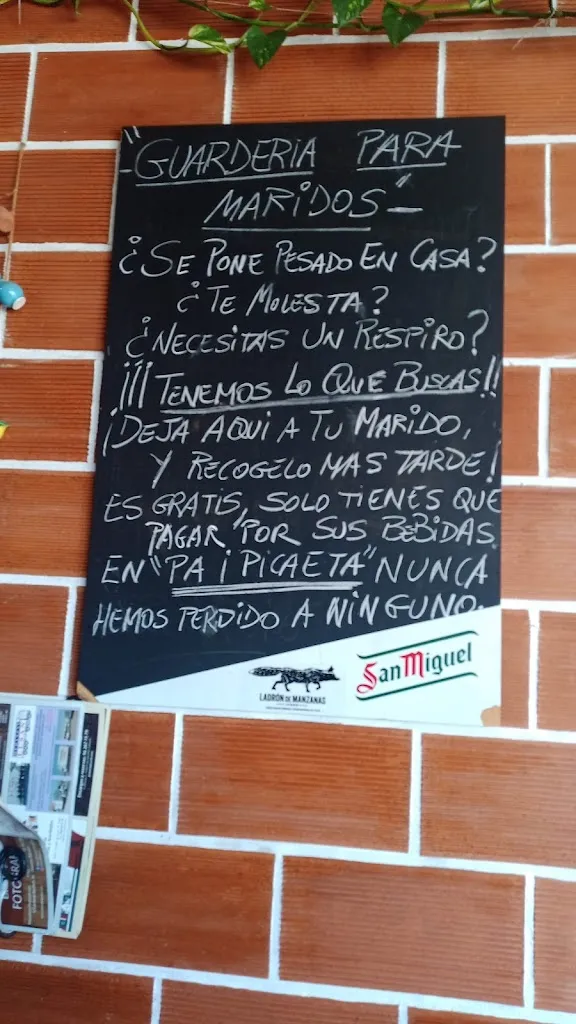 "GUARDERIA PARA
MARIDOS"
¿SE PONE PESADO EN CASA?
¿TE MOLESTA?
¿NECESITAS UN RESPIRO?
¡¡¡TENEMOS LO QUE BUSCAS!!
¡DEJA AQUI A TU MARIDO,
Y RECOGELO MAS TARDE!
ES GRATIS, SOLO TIENES QUE
PAGAR POR SUS BEBIDAS
EN "PA i PICAETA" NUNCA
HEMOS PERDIDO A NINGUNO.
LADRÓN DE MANZANAS
San Miguel